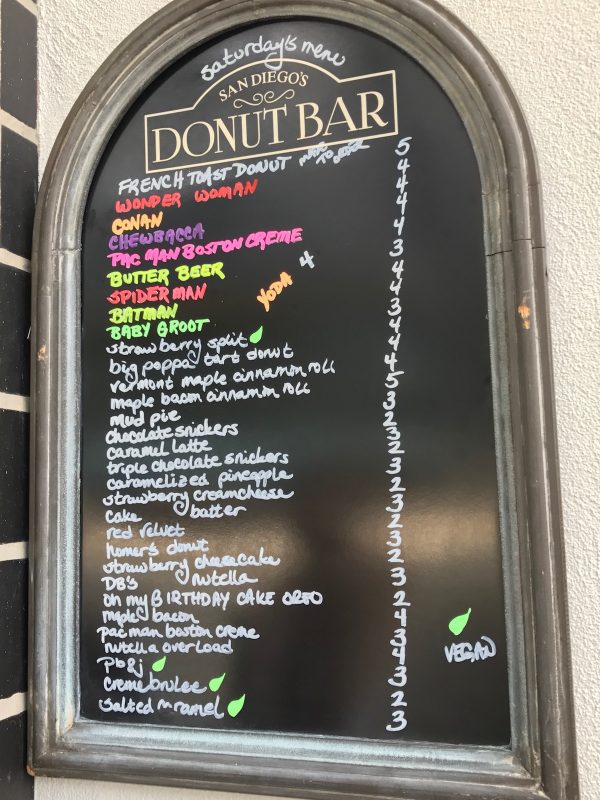 Saturday's menu
SAN DIEGO'S
DONUT BAR
FRENCH TOAST DONUT MADE TO ORDER 5
WONDER WOMAN 4
CONAN 4
CHEWBACCA 4
PAC MAN BOSTON CREME 4
BUTTER BEER 3
YODA 4
SPIDERMAN 4
BATMAN 4
BABY GROOT 3
strawberry split 4
big poppa tart donut 4
vermont maple cinnamon roll 4
maple bacon cinnamon roll 5
mud pie 3
chocolate snickers 2
caramel latte 3
triple chocolate snickers 2
caramelized pineapple 3
strawberry creamcheese 2
cake batter 3
red velvet 2
homer's donut 3
strawberry cheesecake 2
DB's nutella 3
oh my BIRTHDAY CAKE OREO 2
maple bacon 4
pac man boston creme 3
nutella overload 4
pb&j 3
creme brulee 2
salted caramel 3
VEGAN